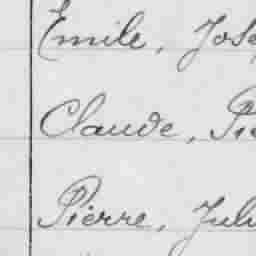 Emile, Jose
Claude, Pie
Pierre, Juli